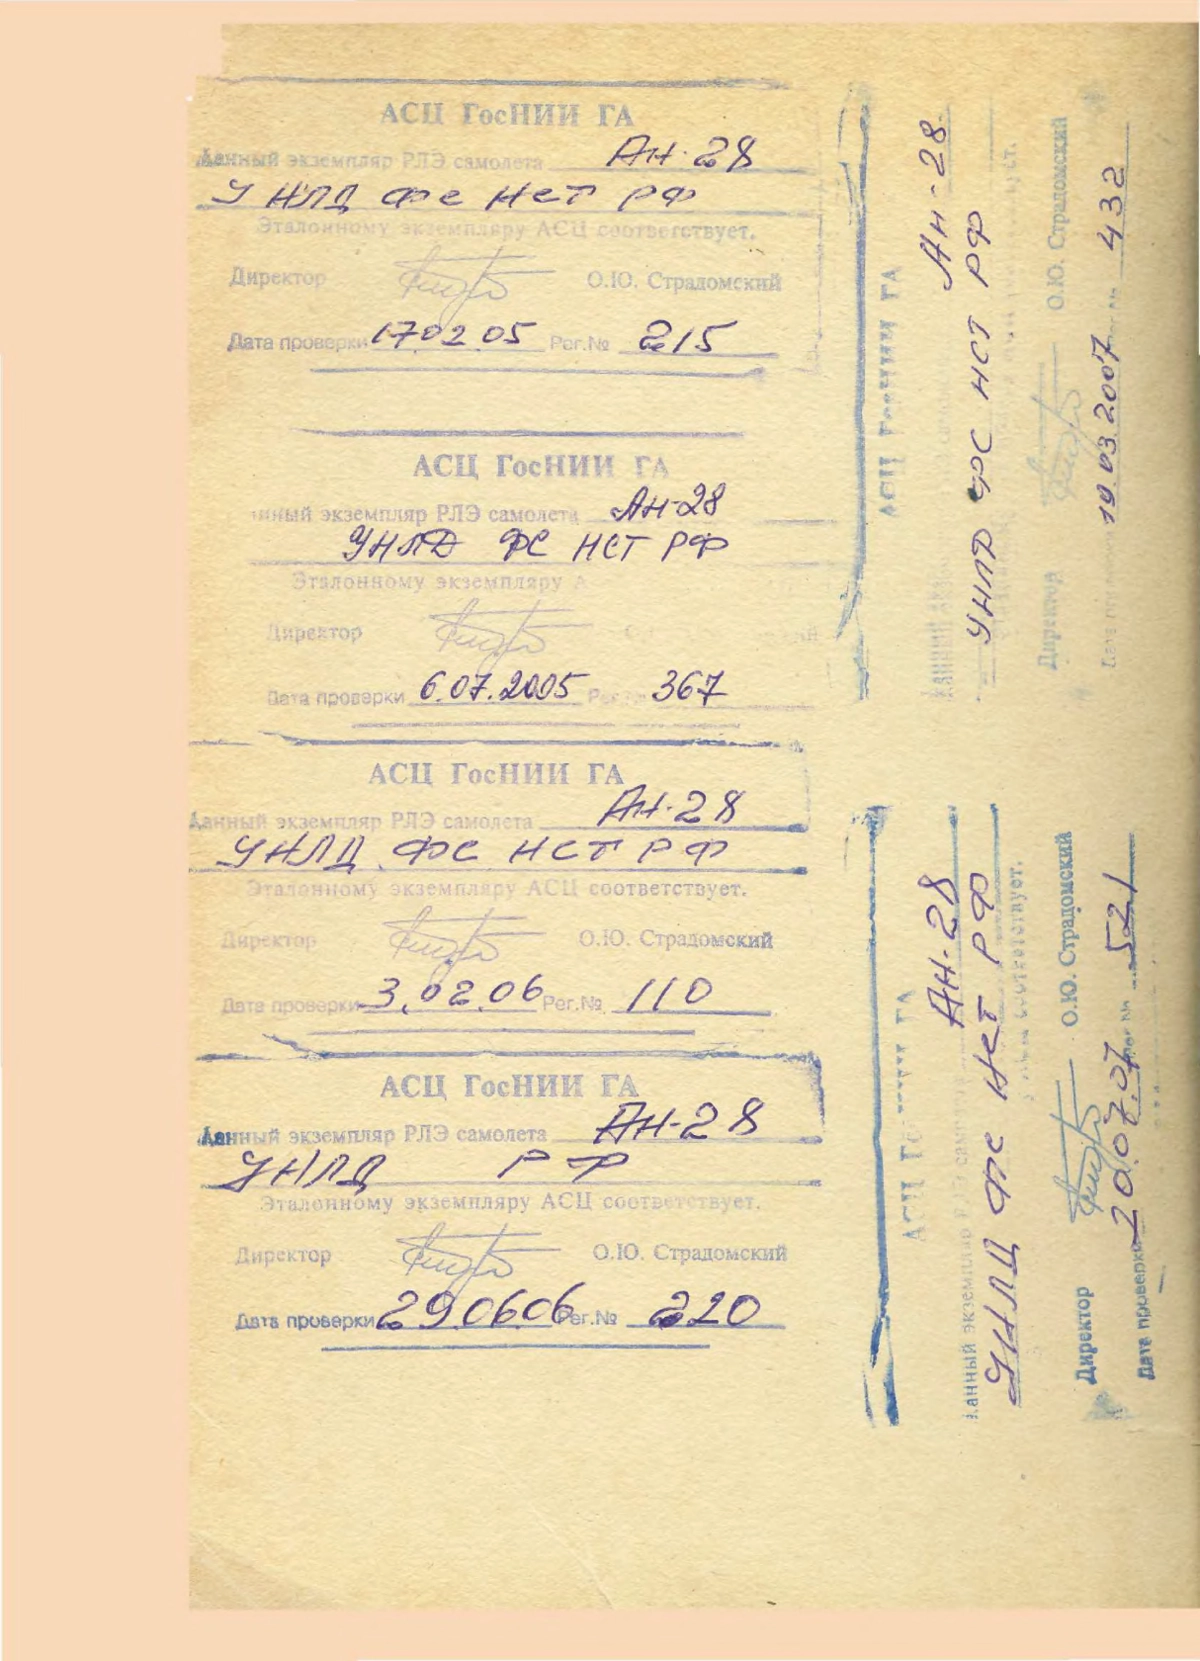 АСЦ ГосНИИ ГА
Данный экземпляр РЛЭ самолета Ан-28
УНЛД ФС НСТ РФ
Эталонному экземпляру АСЦ соответствует.
Директор О.Ю. Страдомский
Дата проверки 17.02.05 Рег.№ 215
АСЦ ГосНИИ ГА
нный экземпляр РЛЭ самолета Ан-28
УНЛД ФС НСТ РФ
Эталонному экземпляру А
Директор
Дата проверки 6.07.2005 Рег 367
АСЦ ГосНИИ ГА
Данный экземпляр РЛЭ самолета Ан-28
УНЛД ФС НСТ РФ
Эталонному экземпляру АСЦ соответствует.
Директор О.Ю. Страдомский
Дата проверки 3.02.06 Рег.№ 110
АСЦ ГосНИИ ГА
Данный экземпляр РЛЭ самолета Ан-28
УНЛД РФ
Эталонному экземпляру АСЦ соответствует.
Директор О.Ю. Страдомский
Дата проверки 29.06.06 Рег.№ 220
АСЦ ГосНИИ ГА
Данный Ан-28
УНЛД ФС НСТ РФ
Директор О.Ю. Страдомский
19.03.2007 432
АСЦ ГА
Данный экземпляр Ан-28
УНЛД ФС НСТ РФ
соответствует.
Директор О.Ю. Страдомский
Дата проверки 20.07.07 521